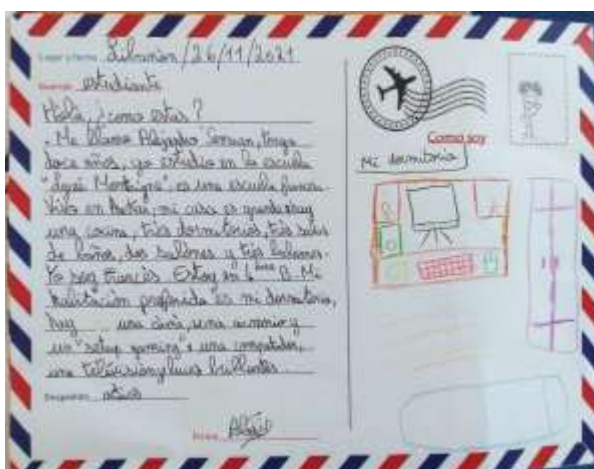 Lugar y fecha: Libanón/26/11/2021
estudiante
Hola, ¿como estas?
Me llamo Alejandro, tengo
doce años, yo estudio en la escuela
"Lycée Montaigne" es una escuela
Vivo en mi casa es grande hay
una cocina, tres dormitorios, tres salas
de baños, dos salónes y tres balcones.
Yo soy francés. Estoy en 6 B. Mi
habitación preferida es mi dormitorio,
hay una cama, una armario y
un "setup gaming": una
una televisión y luces brillantes
Despedida: adios
Firma:
Como soy
Mi dormitorio